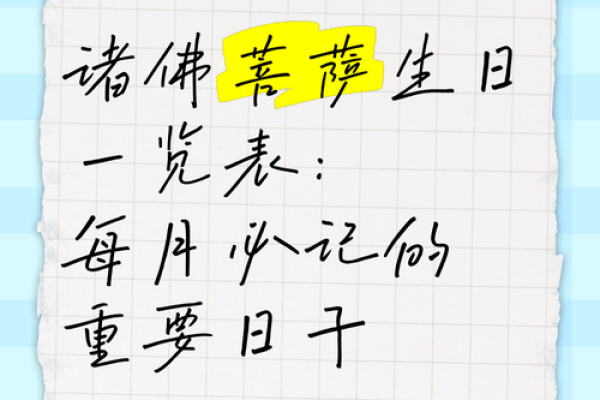 诸佛菩萨生日
一览表：
每月必记的
重要日干